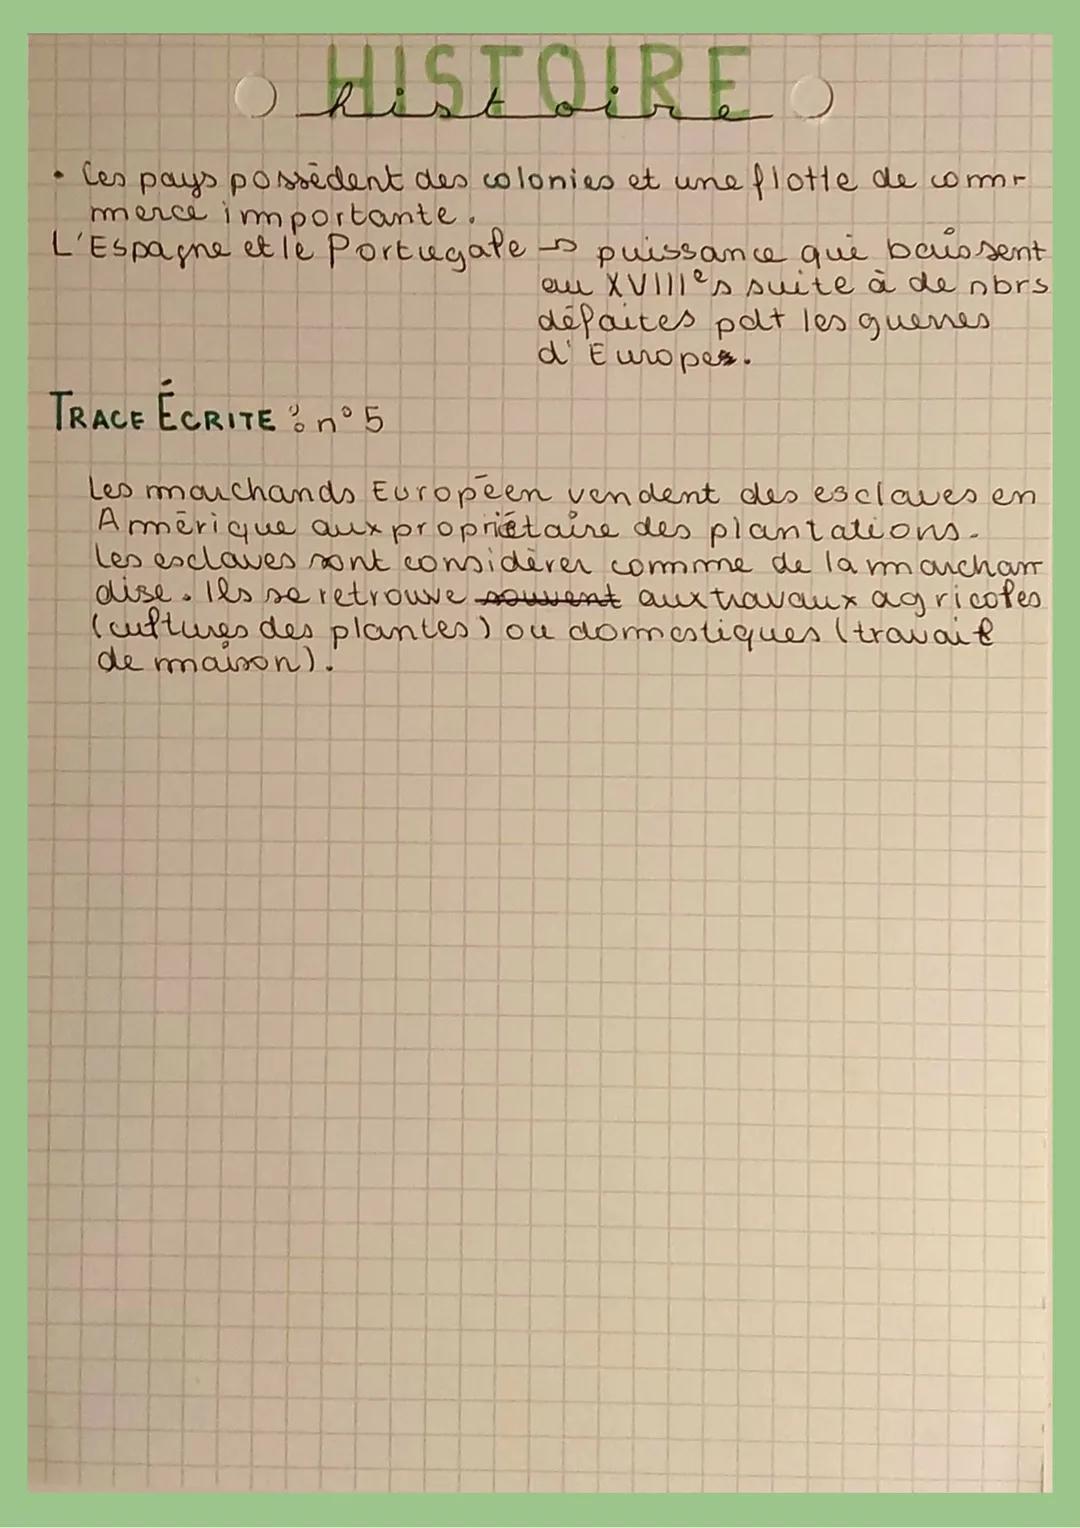 HISTOIRE
histoire
• Ces pays possèdent des colonies et une flotte de com-
merce importante.
L'Espagne et le Portugale → puissance qui baissent
au XVIIIe s suite à de nbrs
défaites pdt les guerres
d'Europe.
TRACE ÉCRITE : n° 5
Les marchands Européen vendent des esclaves en
Amérique aux propriétaire des plantations.
Les esclaves sont considérer comme de la marchan
dise. Ils se retrouve souvent aux travaux agricoles
(cultures des plantes) ou domestiques (travail
de maison).